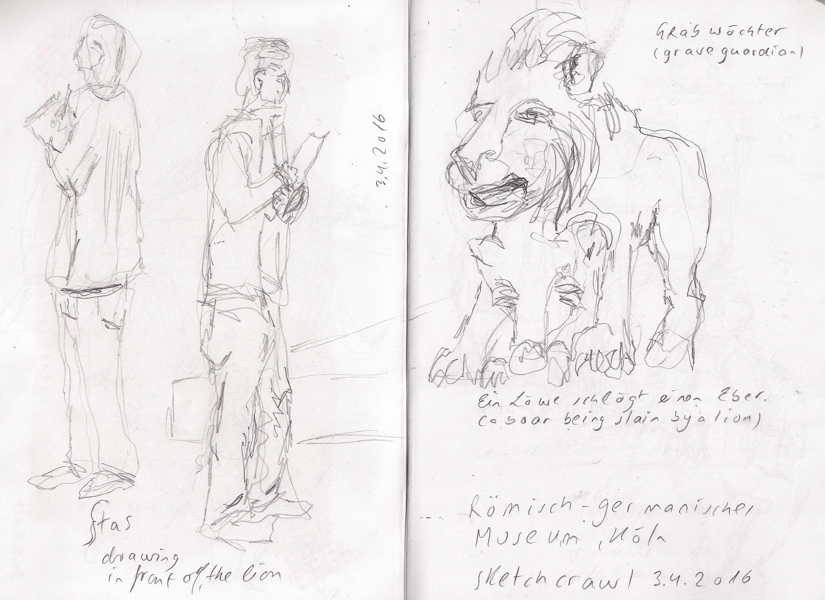 Stas
drawing
in front off, the lion
3.4.2016
Grabwächter
(grave guardian)
Ein Löwe schlägt einen Eber.
(a boar being slain by a lion)
Römisch-germanisches
Museum, Köln
Sketchcrawl 3.4.2016